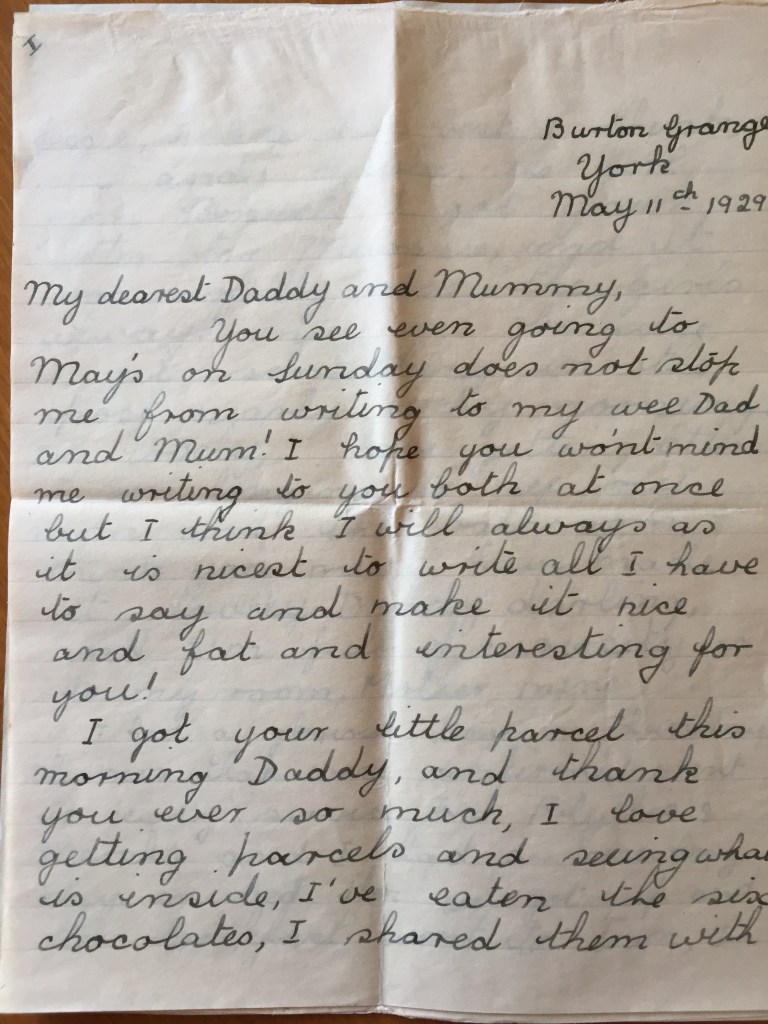 I
Burton Grange
York
May 11th 1929
My dearest Daddy and Mummy,
You see even going to
May's on Sunday does not stop
me from writing to my wee Dad
and Mum! I hope you wo'nt mind
me writing to you both at once
but I think I will always as
it is nicest to write all I have
to say and make it nice
and fat and interesting for
you!
I got your little parcel this
morning Daddy, and thank
you ever so much, I love
getting parcels and seeing wha
is inside, I've eaten the six
chocolates, I shared them with